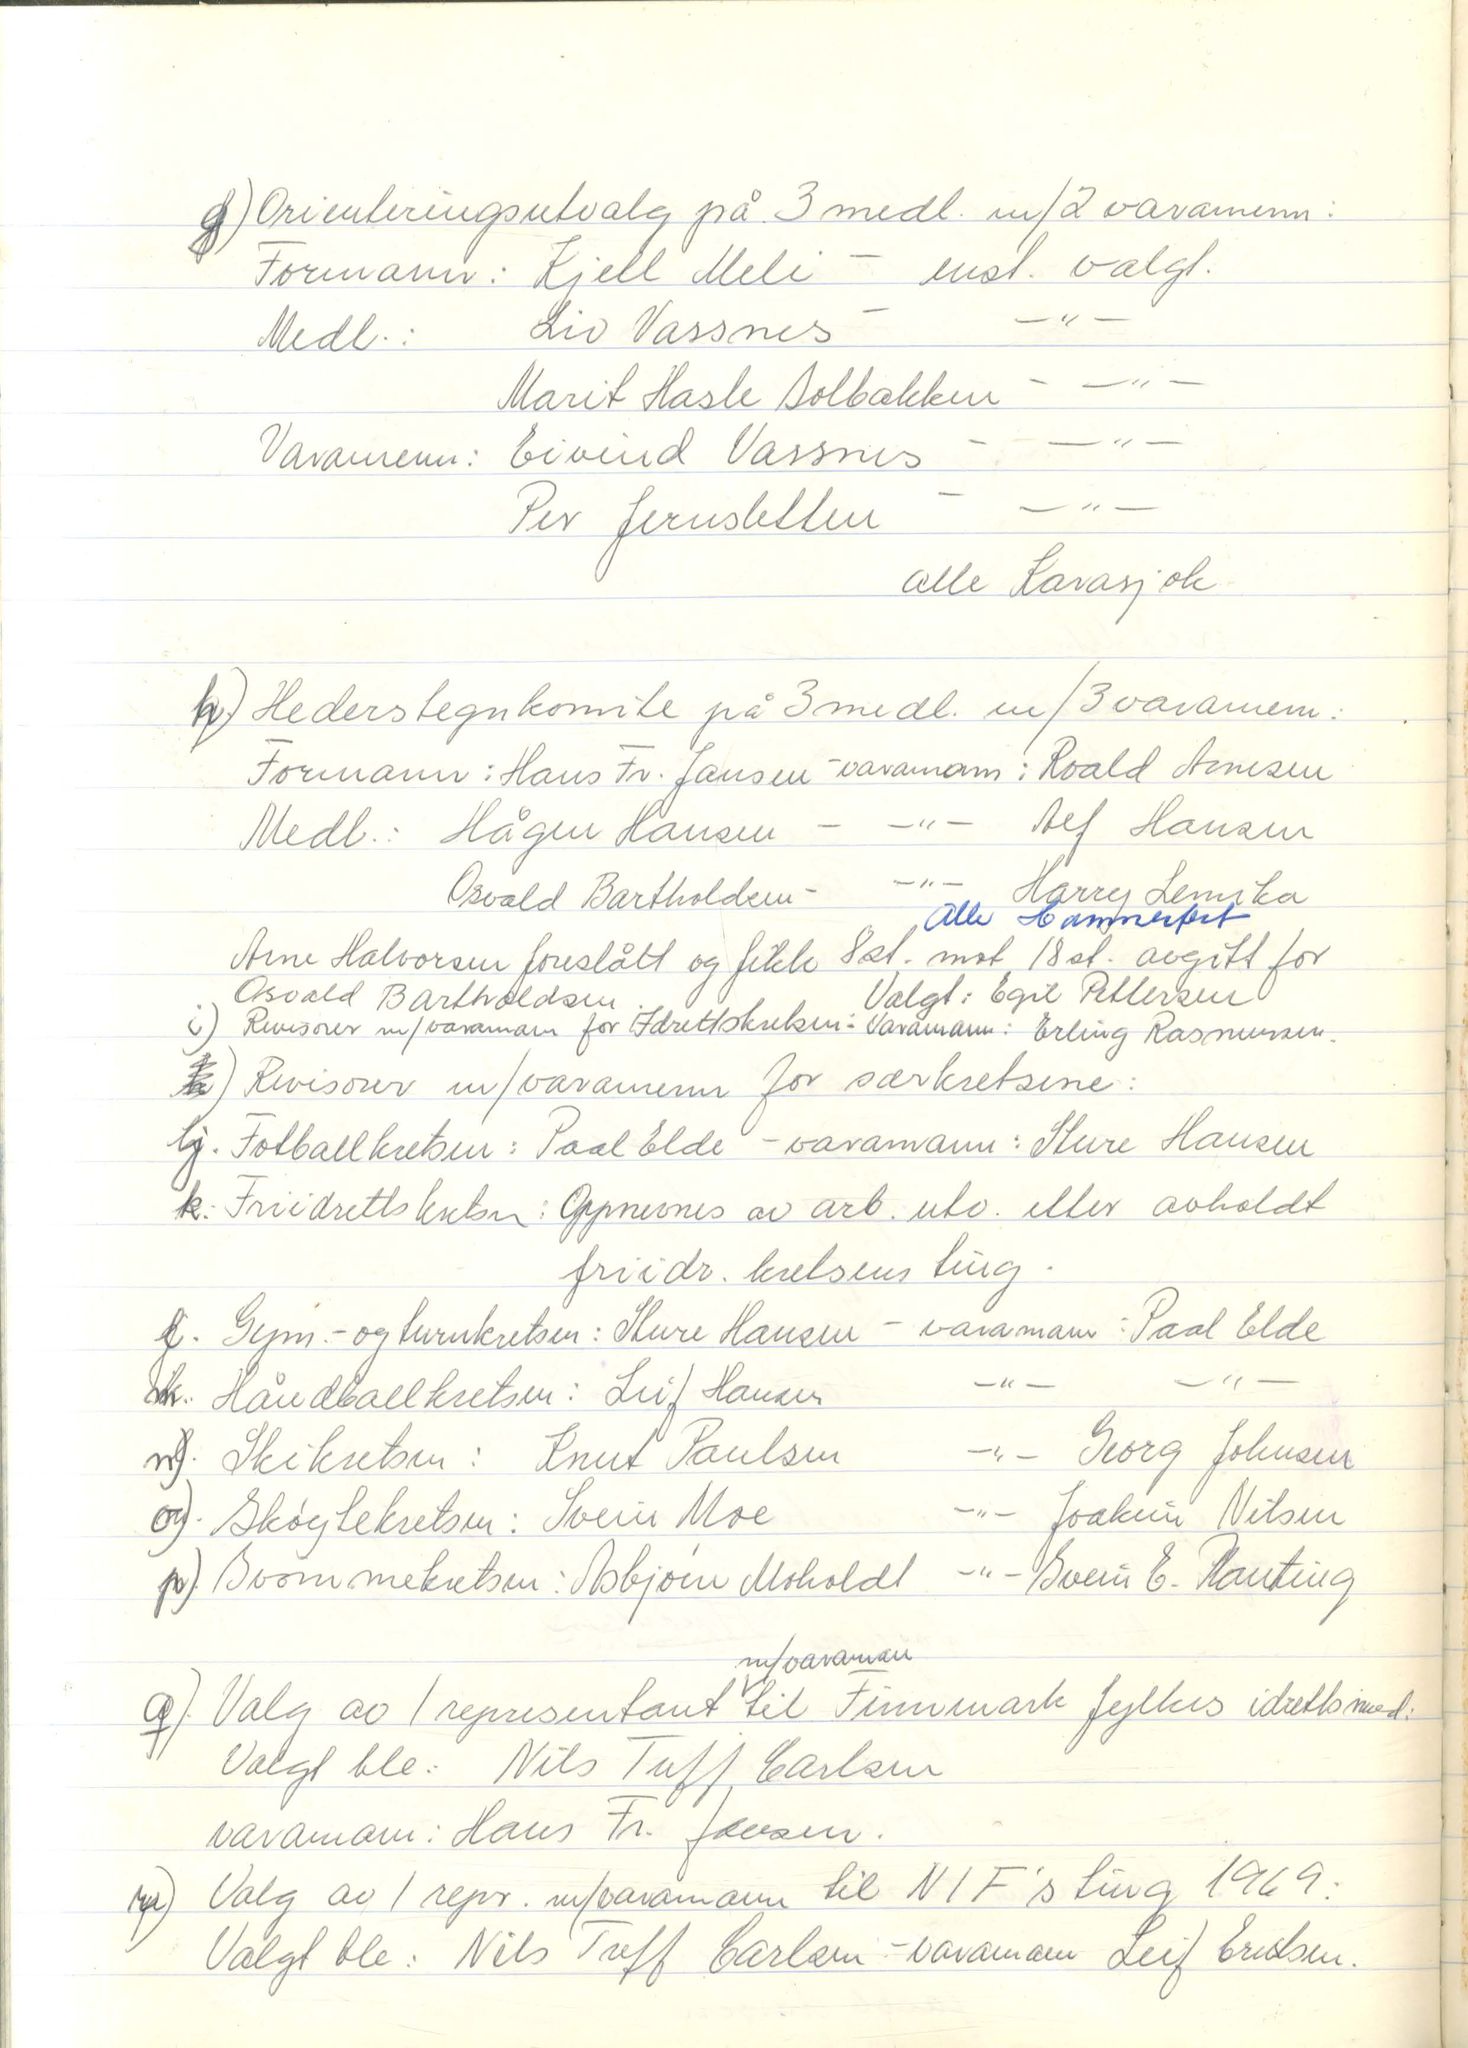 g) Orienteringsutvalg på 3 medl. m/2 varamenn:
Formann: Kjell Meli - enst. valgt.
Medl.: Liv Vassnes - -"-
Marit Hasle Solbakken - -"-
Varamenn: Eivind Vassnes - -"-
Per Jernsletten - -"-
alle Karasjok
h) Hederstegnkomite på 3 medl. m/3 varamenn:
Formann: Hans Fr. Jansen - varamann: Roald Arnesen
Medl.: Hågen Hansen - -"- Alf Hansen
Osvald Bartholdsen - -"- Harry Lemika
Alle Hammerfest
Arne Halvorsen foreslått og fikk 8 st. mot 18 st. avgitt for
Osvald Bartholdsen. Valgt: Egil Pettersen
i) Revisorer m/varamann for Idrettskretsen: Varamann: Erling Rasmussen.
) Revisorer m/varamenn for særkretsene:
j. Fotballkretsen: Paal Elde - varamann: Sture Hansen
k. Friidrettskretsen: Oppnevnes av arb. utv. etter avholdt
friidr. kretsens ting.
l. Gym.- og turnkretsen: Sture Hansen - varamann: Paal Elde
m. Håndballkretsen: Leif Hansen -"- -"-
n). Skikretsen: Knut Paulsen -"- Georg Johnsen
o). Skøytekretsen: Svein Moe -"- Joakim Nilsen
p). Svømmekretsen: Asbjørn Moholdt -"- Svein E. Planting
m/varaman
q). Valg av 1 representant til Finnmark fylkes idrettsnevnd:
Valgt ble: Nils Tuff Carlsen
varamann: Hans Fr. Jansen.
r) Valg av 1 repr. m/varamann til NIF's ting 1969:
Valgt ble: Nils Tuff Carlsen - varamann Leif Eriksen.